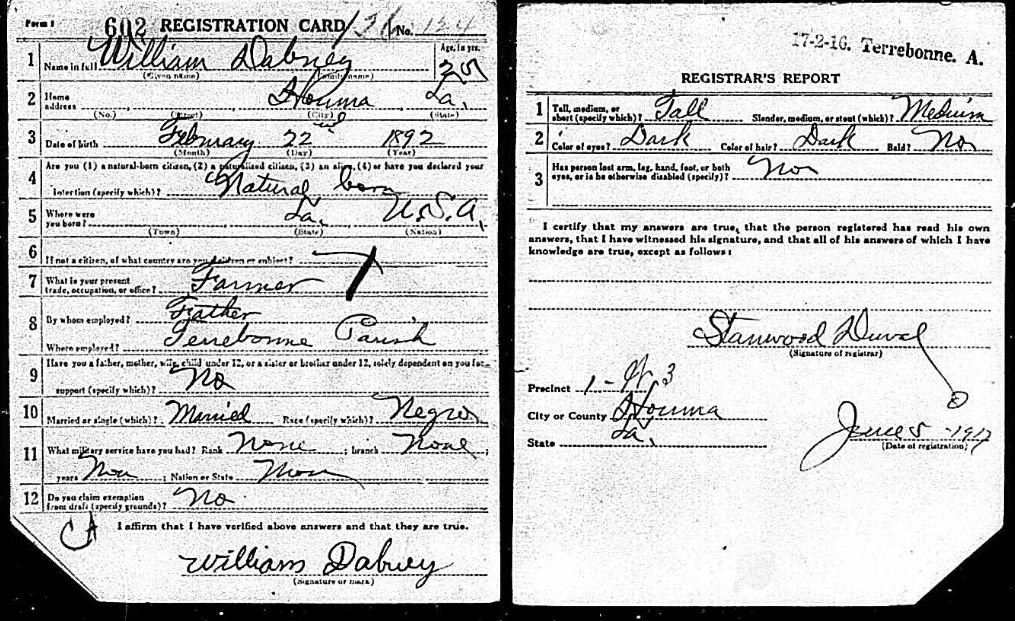 Form 1 602 REGISTRATION CARD No. 134
1 Name in full William Dabney Age, in yrs. 25
(Given name) (Family name)
2 Home address Houma La.
(No.) (Street) (City) (State)
3 Date of birth February 22 1892
(Month) (Day) (Year)
4 Are you (1) a natural-born citizen, (2) a naturalized citizen, (3) an alien, (4) or have you declared your
intention (specify which)? Natural born
5 Where were you born? La. U.S.A.
(Town) (State) (Nation)
6 If not a citizen, of what country are you a citizen or subject?
7 What is your present trade, occupation, or office? Farmer
8 By whom employed? Father
Where employed? Terrebonne Parish
9 Have you a father, mother, wife, child under 12, or a sister or brother under 12, solely dependent on you for
support (specify which)? No
10 Married or single (which)? Married Race (specify which)? Negro
11 What military service have you had? Rank None ; branch None ;
years Non ; Nation or State Non
12 Do you claim exemption from draft (specify grounds)? No.
I affirm that I have verified above answers and that they are true.
CA
William Dabney
(Signature or mark)
17-2-16. Terrebonne. A.
REGISTRAR'S REPORT
1 Tall, medium, or short (specify which)? Tall Slender, medium, or stout (which)? Medium
2 Color of eyes? Dark Color of hair? Dark Bald? No
3 Has person lost arm, leg, hand, foot, or both eyes, or is he otherwise disabled (specify)? No
I certify that my answers are true, that the person registered has read his own
answers, that I have witnessed his signature, and that all of his answers of which I have
knowledge are true, except as follows:
Stanwood Duval
(Signature of registrar)
Precinct 1 - W 3
City or County Houma
State La.
June 5 - 1917
(Date of registration)